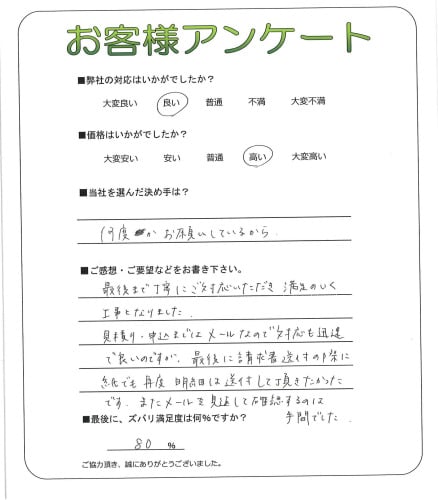 お客様アンケート
■弊社の対応はいかがでしたか？
大変良い 良い 普通 不満 大変不満
■価格はいかがでしたか？
大変安い 安い 普通 高い 大変高い
■当社を選んだ決め手は？
何度かお願いしているから
■ご感想・ご要望などをお書き下さい。
最後まで丁寧にご対応いただき満足のいく
工事となりました。
見積り・申込まではメールなので対応も迅速
で良いのですが、最後に請求書送付の際に
紙でも再度明細は送付して頂きたかった
です。またメールを見返して確認するのは
手間でした。
■最後に、ズバリ満足度は何%ですか？
80 %
ご協力頂き、誠にありがとうございました。